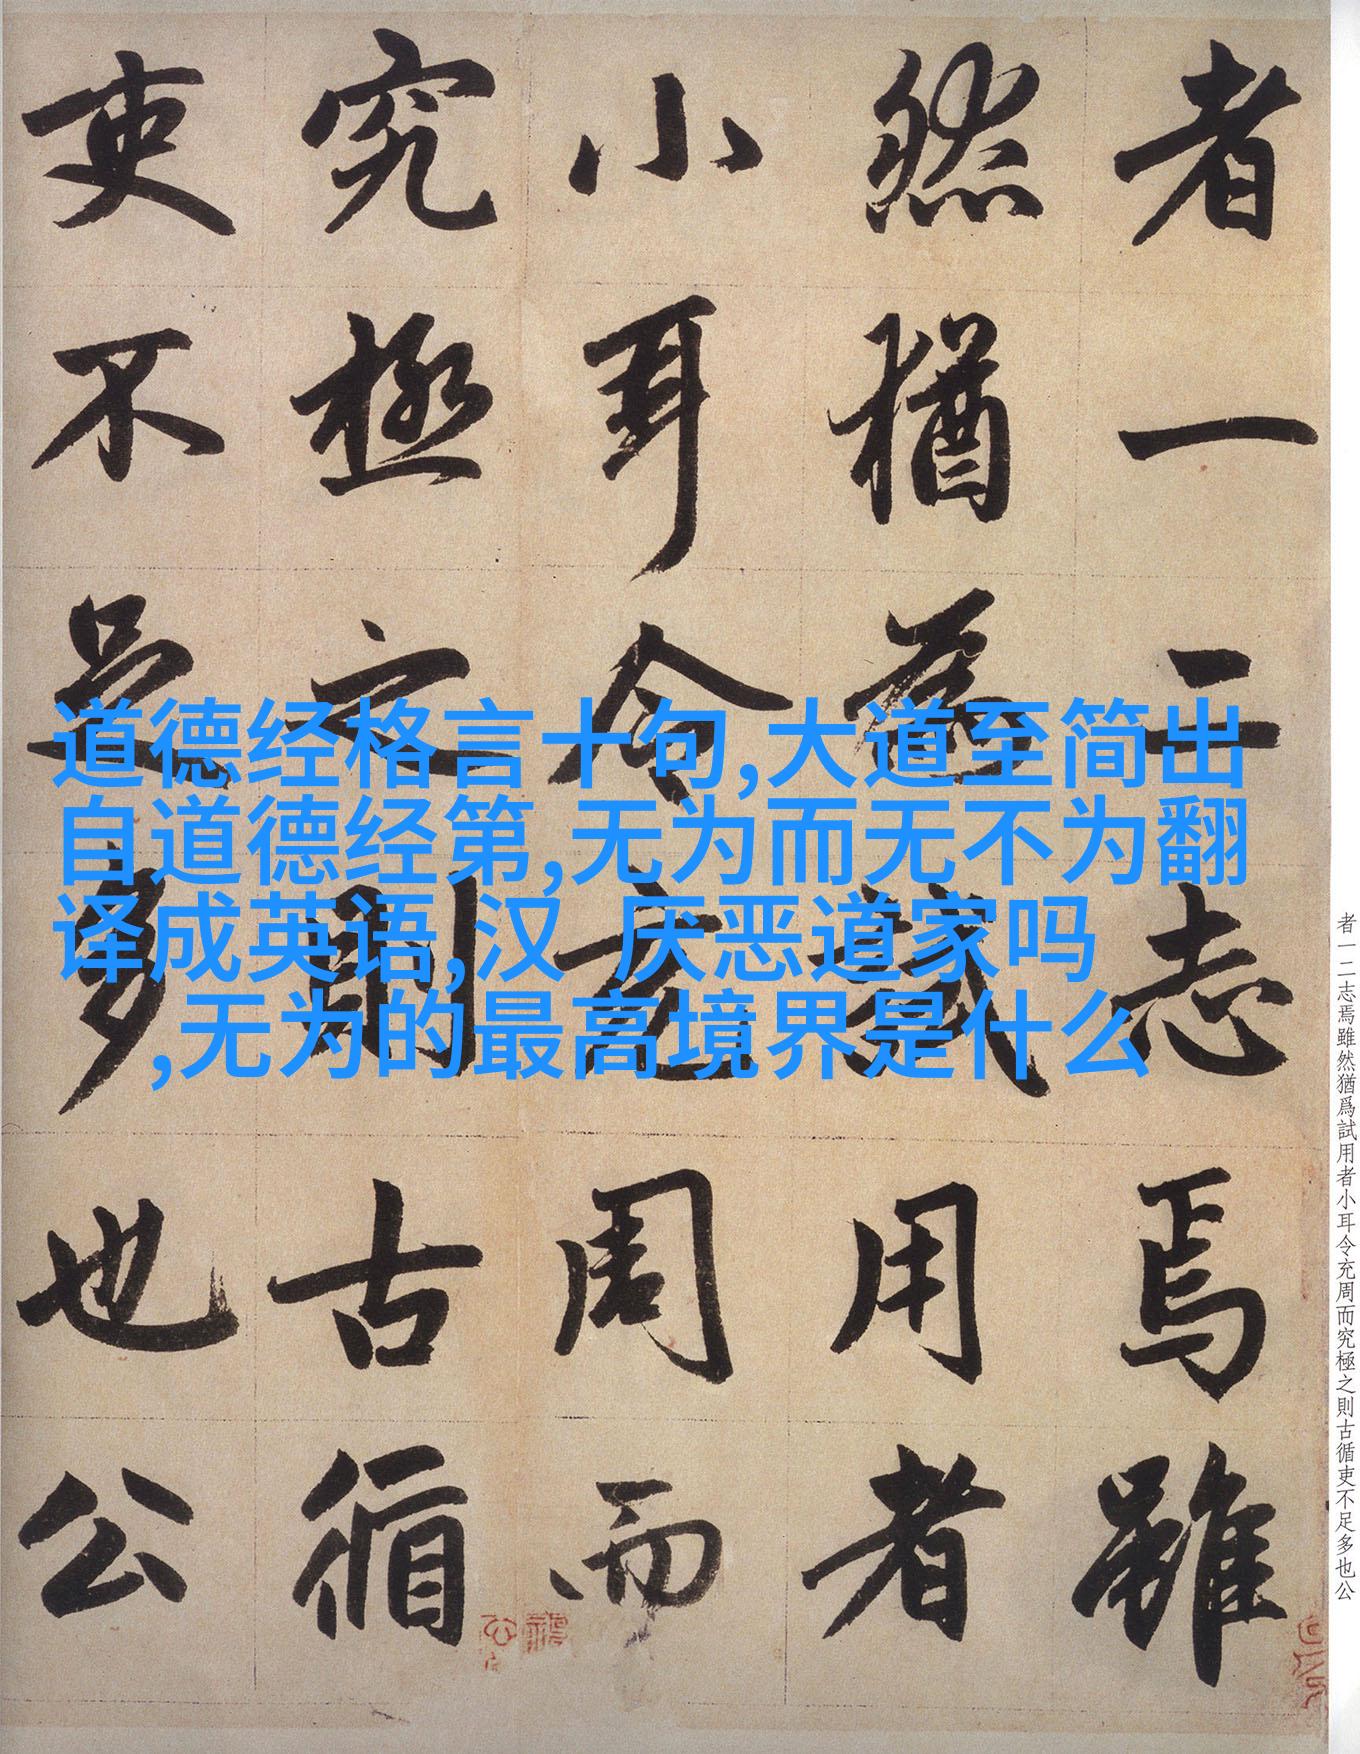 者一二志焉雖
然猶為試用者
小耳令充周而
究極之則古循
吏不足多也公
道德经格言十句,大道至简出
自道德经第,无为而无不为翻
译成英语,汉 厌恶道家吗
,无为的最高境界是什么
者一二志焉雖然猶爲試用者小耳令充周而究極之則古循吏不足多也公